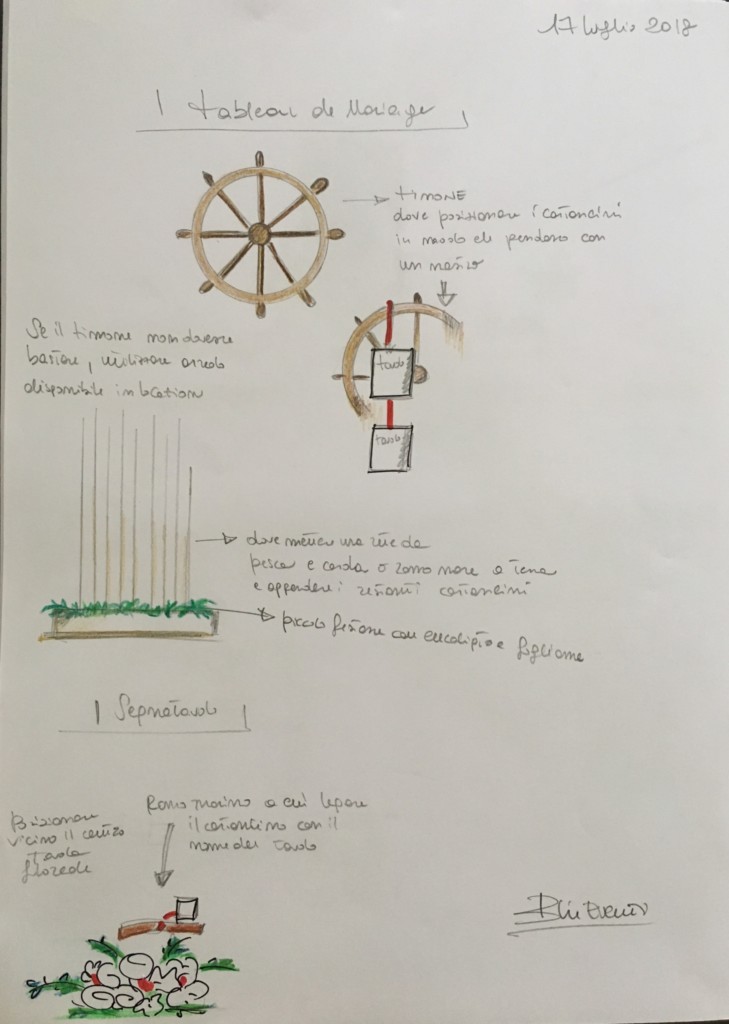 17 luglio 2018
Tableau de Mariage
TIMONE
dove posizionare i cartoncini
in modo che pendano con
un nastro
Se il timone non dovesse
bastare, utilizzare arredo
disponibile in location
tavolo
tavolo
dove mettere una rete da
pesca e corda o ramo mare a terra
e appendere i restanti cartoncini
piccolo festone con eucalipto e fogliame
Segnatavolo
Posizionare
vicino il centro
tavola
floreale
Ramo marino a cui legare
il cartoncino con il
nome del tavolo